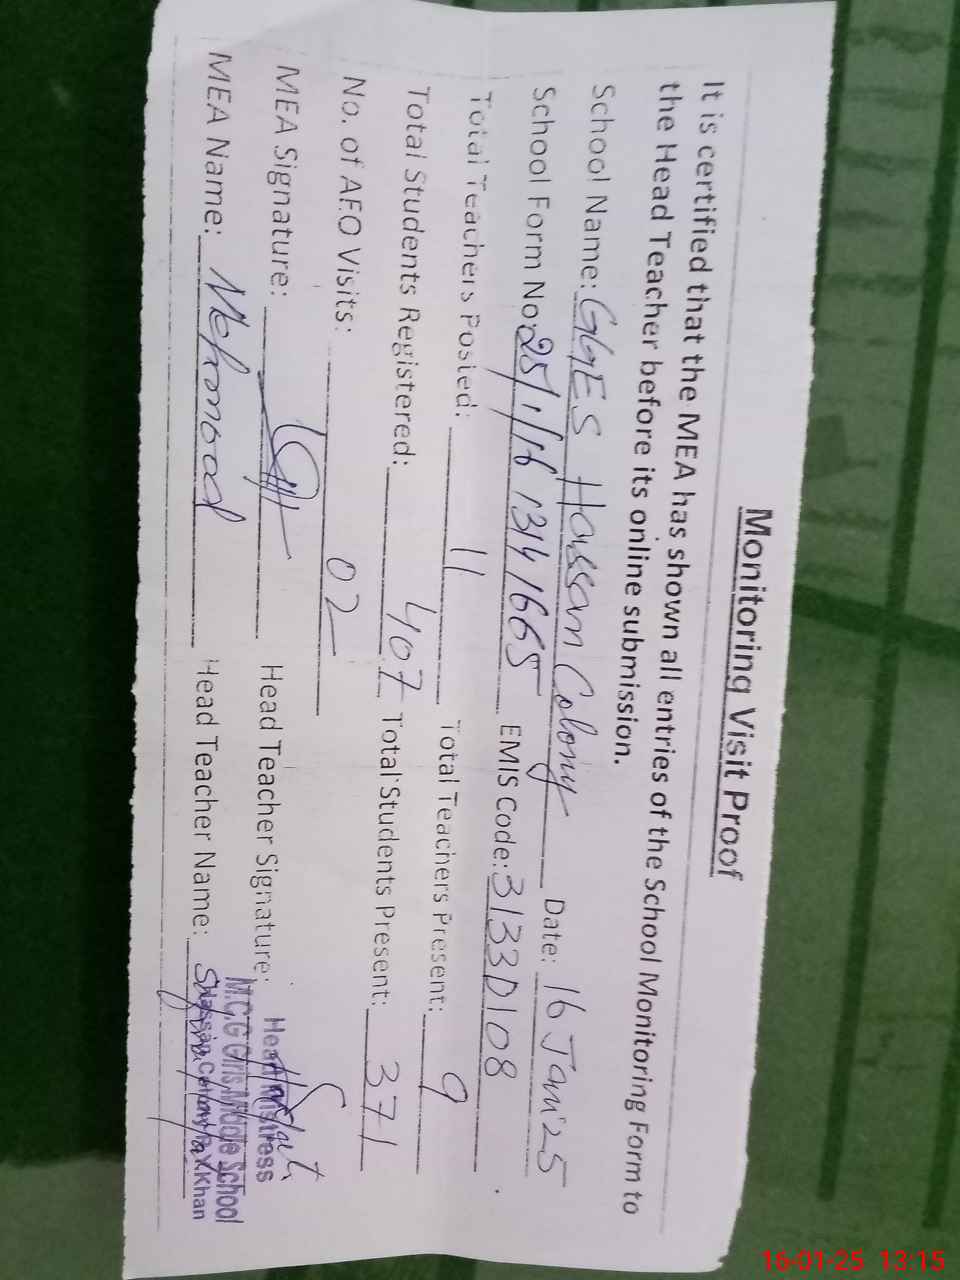 Monitoring Visit Proof
It is certified that the MEA has shown all entries of the School Monitoring Form to
the Head Teacher before its online submission.
School Name: GGES Hassan Colony Date: 16 Jan'25
School Form No: 25/1/16 1314 1665 EMIS Code: 31330108
Total Teachers Posted: 11 Total Teachers Present: 9
Total Students Registered: 407 Total Students Present: 371
No. of AEO Visits: 02
MEA Signature: Head Teacher Signature:
Head Mistress
M.C.G Girls Middle School
Hassan Colony R.Y.Khan
MEA Name: Mehmood Head Teacher Name:
16-01-25 13:15